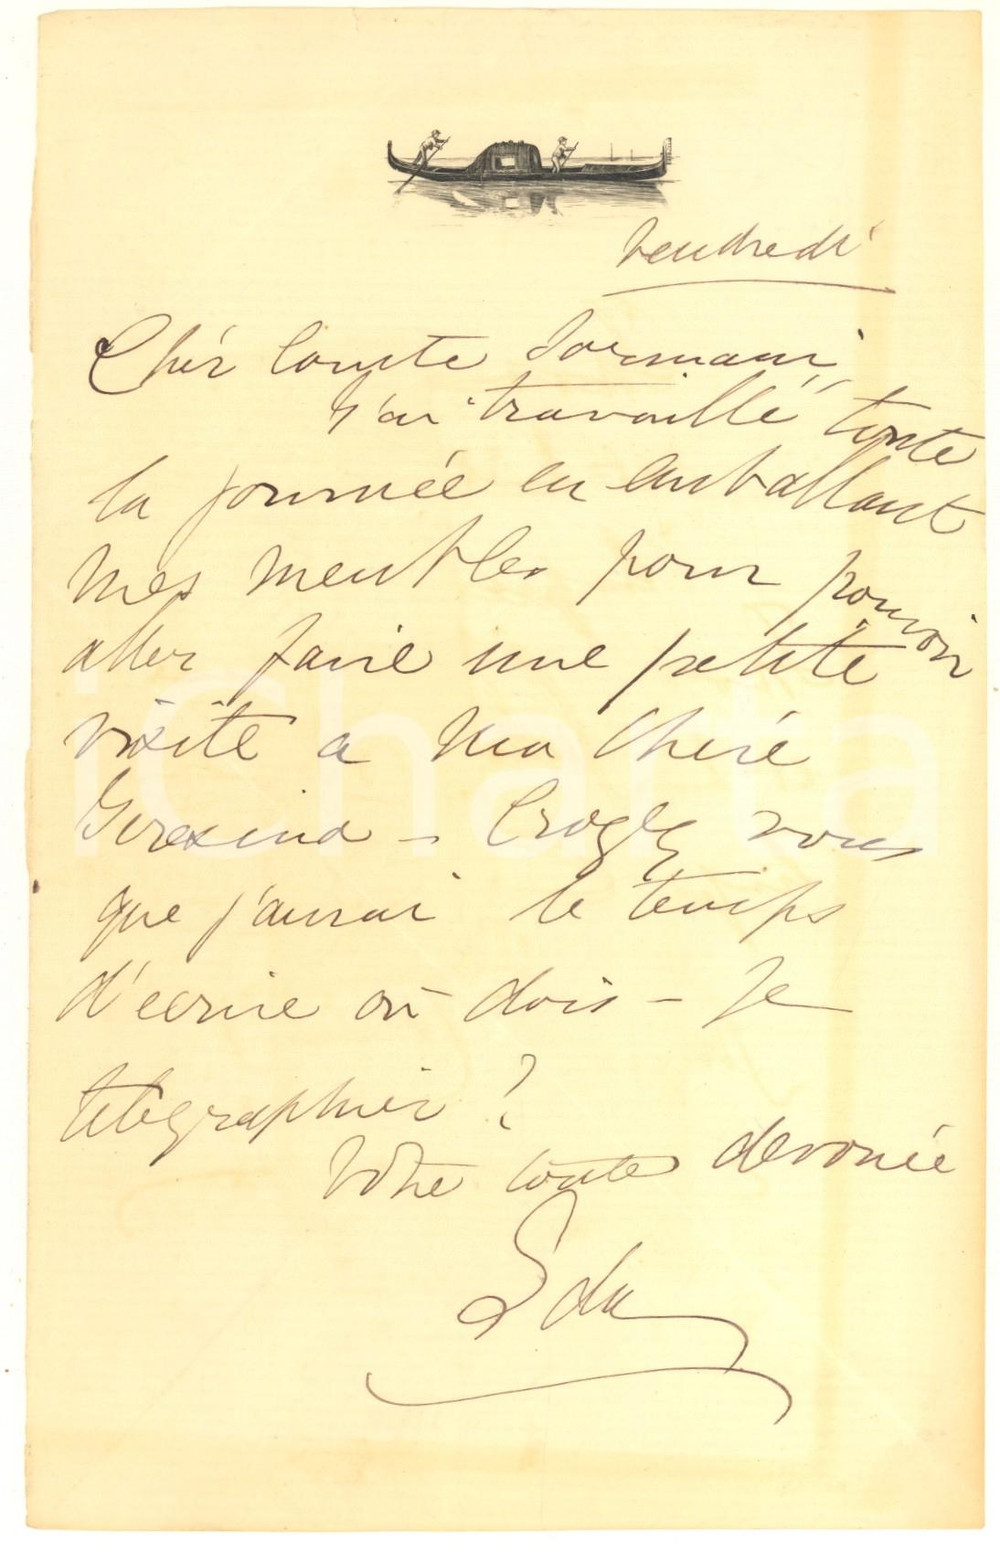 Vendredi
Chér Comte Sormani,
J'ai travaillé toute
la journée en emballant
mes meubles pour pouvoir
aller faire une petite
visite a ma chére
Gerexina – Croyez vous
que j'aurai le temps
d'ecrire ou dois – Je
telegraphier ?
Votre toute devouée
Ida
iCharta